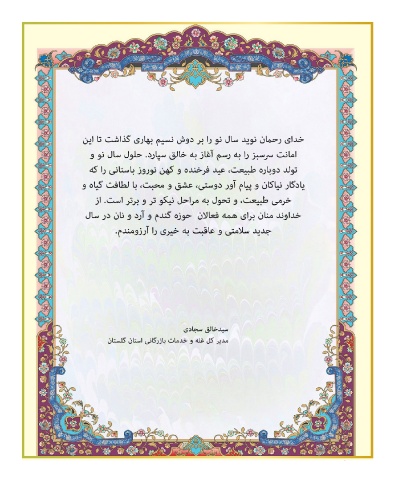 خدای رحمان نوید سال نو را بر دوش نسیم بهاری گذاشت تا این
امانت سرسبز را به رسم آغاز به خالق سپارد. حلول سال نو و
تولد دوباره طبیعت، عید فرخنده و کهن نوروز باستانی را که
یادگار نیاکان و پیام آور دوستی، عشق و محبت، با لطافت گیاه و
خرمی طبیعت، و تحول به مراحل نیکو تر و برتر است. از
خداوند منان برای همه فعالان حوزه گندم و آرد و نان در سال
جدید سلامتی و عاقبت به خیری را آرزومندم.
سیدخالق سجادی
مدیر کل غله و خدمات بازرگانی استان گلستان